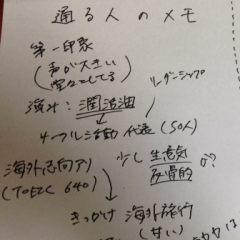 通る人のメモ
第一印象
(声が大きい
堂々としてる)
リーダーシップ
強み: 潤滑油
サークル活動 代表 (50人)
海外志向アリ
(TOEIC 640)
少し生意気
が?
きっかけ 海外旅行
(甘い)